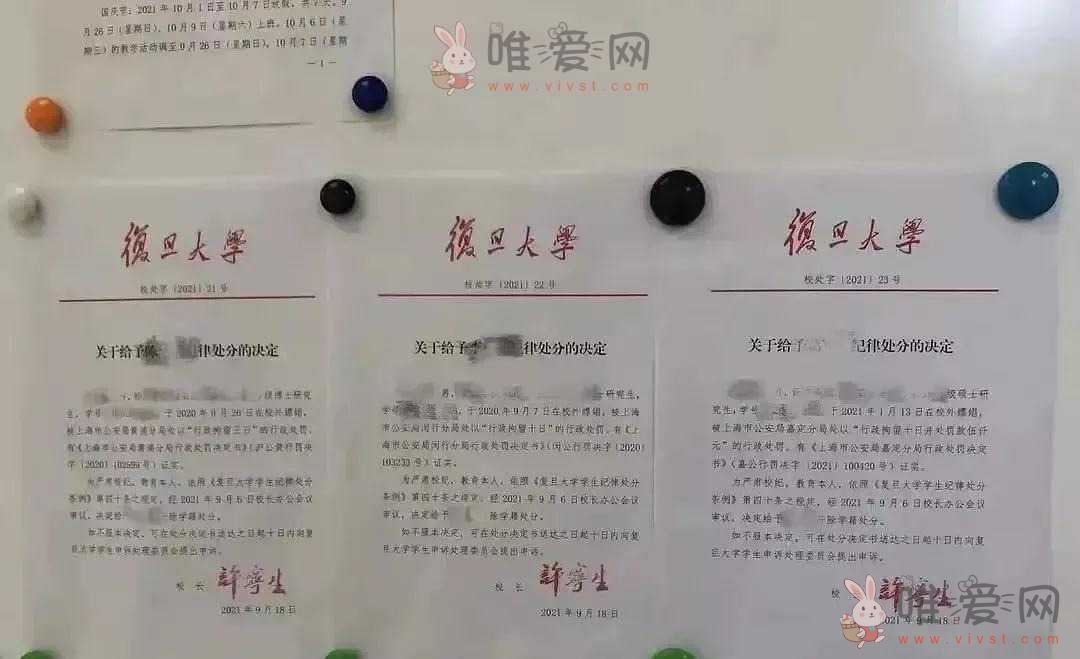 国庆节：2021年10月1日至10月7日放假，共7天。9
月26日（星期日）、10月9日（星期六）上班。10月6日（星
期三）的教学活动调至9月26日（星期日），10月7日（星期
—1—
唯爱网
www.vivst.com
復旦大學
校处字〔2021〕21号
关于给予 律处分的决定
级博士研究
生，学号 于2020年9月26日在校外嫖娼，
被上海市公安局黄浦分局处以“行政拘留三日”的行政处罚。
有《上海市公安局黄浦分局行政处罚决定书》（沪公黄行罚决
字〔2020〕102599号）证实。
为严肃校纪，教育本人，依照《复旦大学学生纪律处分
条例》第四十条之规定，经2021年9月6日校长办公会议
审议，决定给 除学籍处分。
如不服本决定，可在处分决定书送达之日起十日内向复
旦大学学生申诉处理委员会提出申诉。
校 长 許寧生
2021年9月18日
復旦大學
校处字〔2021〕22号
关于给予李 纪律处分的决定
男， 研究生，
学号 ，于2020年9月7日在校外嫖娼，被上海
市公安局闵行分局处以“行政拘留十日”的行政处罚。有《上
海市公安局闵行分局行政处罚决定书》（闵公行罚决字〔2020〕
103233号）证实。
为严肃校纪，教育本人，依照《复旦大学学生纪律处分
条例》第四十条之规定，经2021年9月6日校长办公会议
审议，决定给予 除学籍处分。
如不服本决定，可在处分决定书送达之日起十日内向复
旦大学学生申诉处理委员会提出申诉。
校 长 許寧生
2021年9月18日
復旦大學
校处字〔2021〕23号
关于给予 纪律处分的决定
级硕士研
究生，学号 于2021年1月13日在校外嫖娼，
被上海市公安局嘉定分局处以“行政拘留十日并处罚款伍仟
元”的行政处罚。有《上海市公安局嘉定分局行政处罚决定
书》（嘉公行罚决字〔2021〕100420号）证实。
为严肃校纪，教育本人，依照《复旦大学学生纪律处分
条例》第四十条之规定，经2021年9月6日校长办公会议
审议，决定给予 除学籍处分。
如不服本决定，可在处分决定书送达之日起十日内向复
旦大学学生申诉处理委员会提出申诉。
校 許寧生
2021年9月18日
唯爱网
www.vivst.com